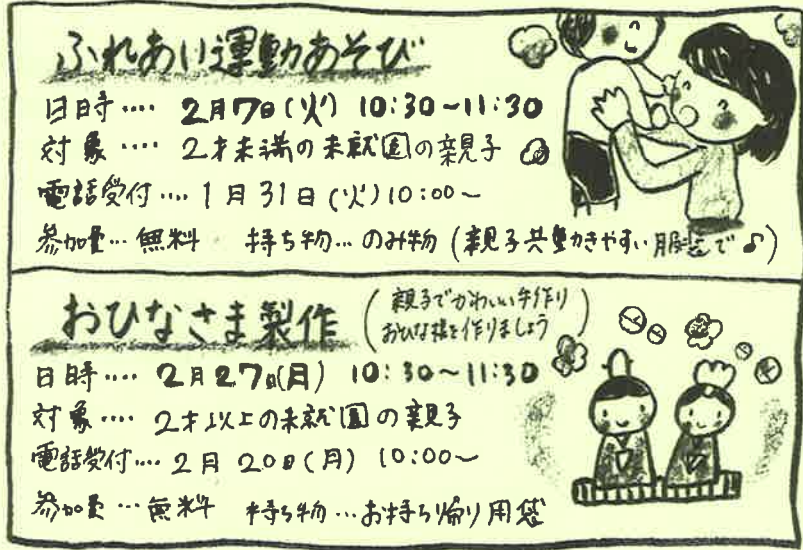 ふれあい運動あそび
日時‥‥ 2月7日(火) 10:30~11:30
対象‥‥ 2才未満の未就園の親子
電話受付‥‥1月31日(火)10:00~
参加費…無料 持ち物…のみ物(親子共動きやすい服装で♪)
おひなさま製作(親子でかわいい手作り
おひな様を作りましょう)
日時‥‥ 2月27日(月) 10:30~11:30
対象‥‥ 2才以上の未就園の親子
電話受付‥‥2月20日(月) 10:00~
参加費…無料 持ち物…お持ち帰り用袋